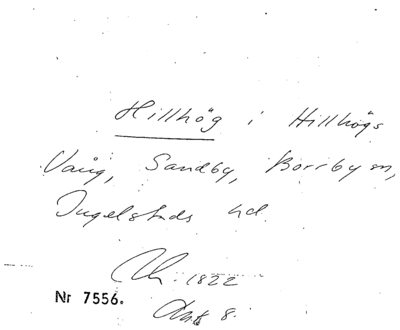 Hillhög i Hillhögs
Vång, Sandby, Borrby sn,
Ingelstads hd.
1822
Nr 7556.
8.